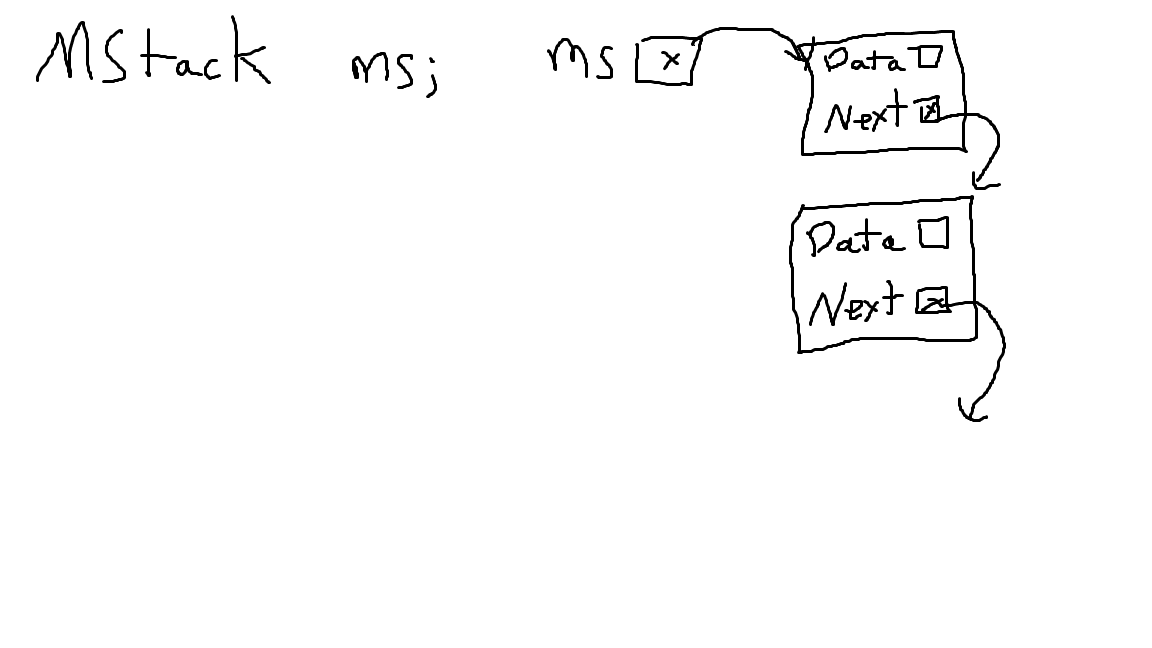 MStack ms; ms x Data
Next x
Data
Next x